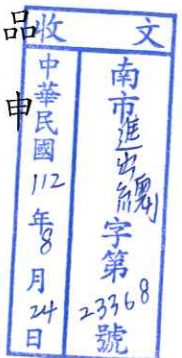 品
申
收文
南市進出總字第23368號
中華民國112年8月24日